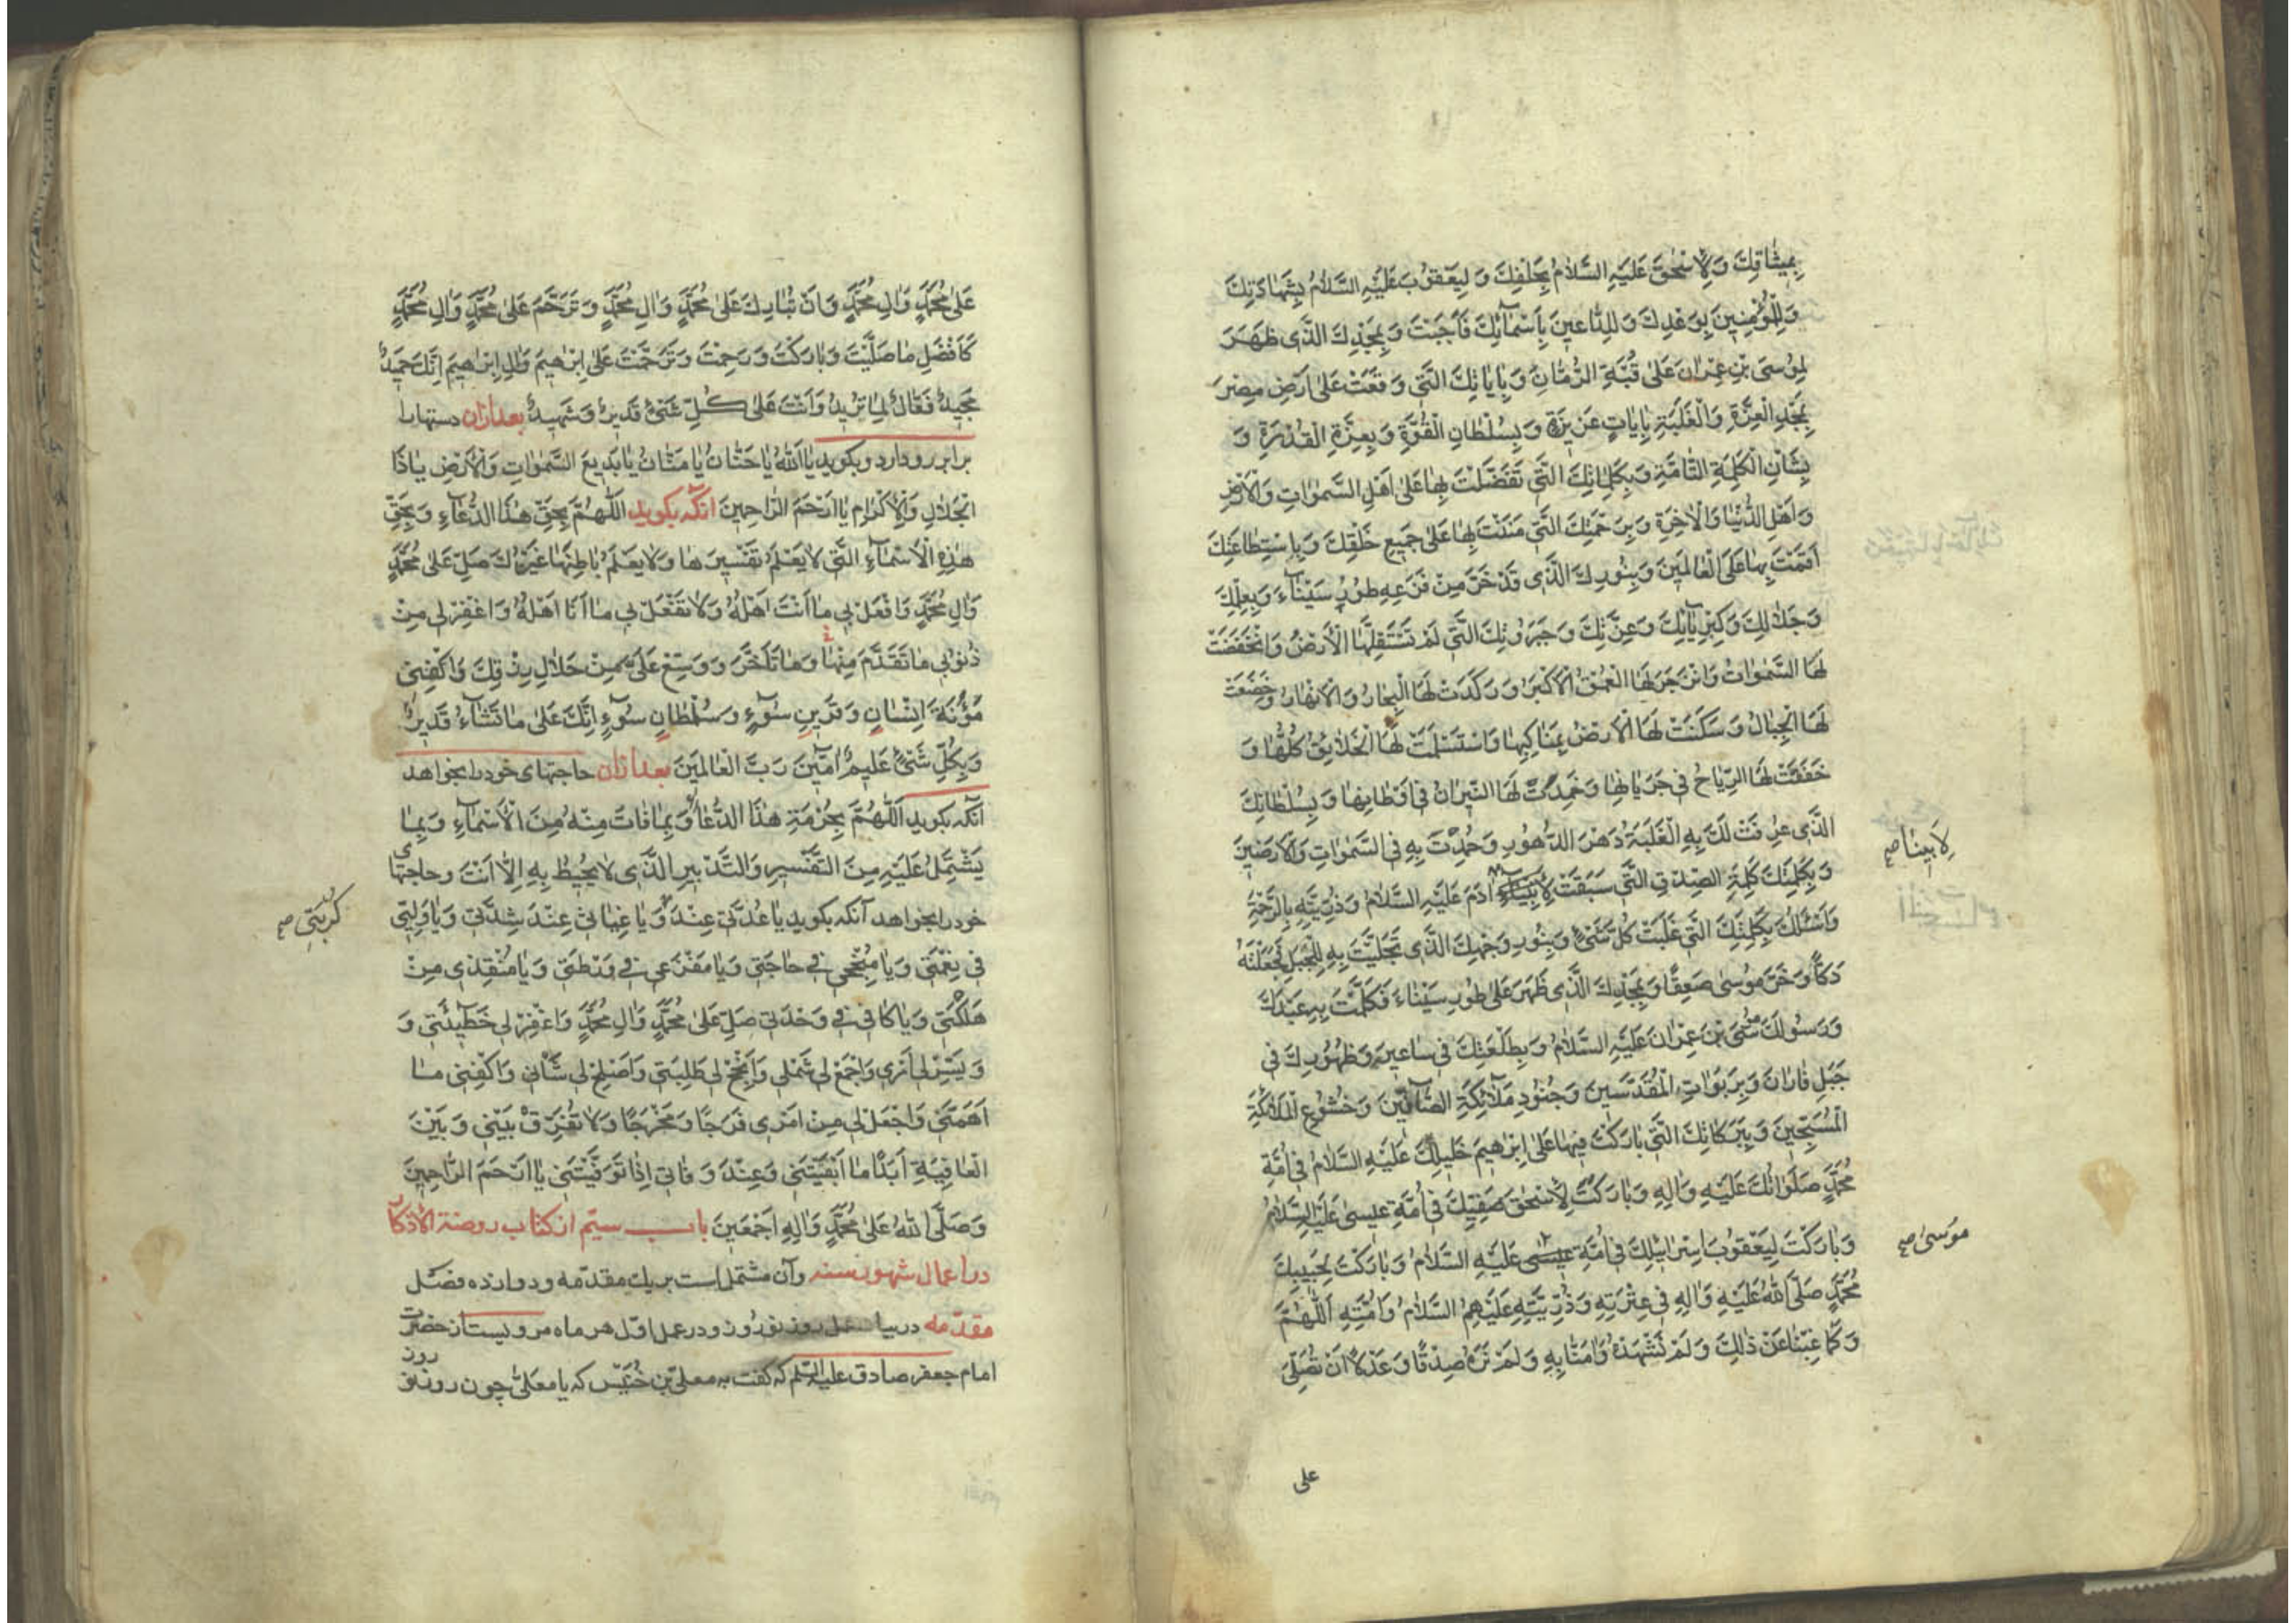 بِمِيثَاقِكَ وَلِإِسْحٰقَ عَلَيْهِ السَّلَامُ بِحَلْفِكَ وَلِيَعْقُوبَ عَلَيْهِ السَّلَامُ بِشَهَادَتِكَ
وَلِلْمُؤْمِنِينَ بِوَعْدِكَ وَلِلدَّاعِينَ بِأَسْمَآئِكَ فَأَجَبْتَ وَبِمَجْدِكَ الَّذِى ظَهَرَ
لِمُوسَى بْنِ عِمْرَانَ عَلَى قُبَّةِ الرُّمَّانِ وَبِآيَاتِكَ الَّتِى وَقَعَتْ عَلَى أَرْضِ مِصْرَ
بِمَجْدِ الْعِزَّةِ وَالْغَلَبَةِ بِآيَاتٍ عَزِيزَةٍ وَبِسُلْطَانِ الْقُوَّةِ وَبِعِزَّةِ الْقُدْرَةِ وَ
بِشَأْنِ الْكَلِمَةِ التَّامَّةِ وَبِكَلِمَاتِكَ الَّتِى تَفَضَّلْتَ بِهَا عَلَى أَهْلِ السَّمٰوَاتِ وَالْأَرْضِ
وَأَهْلِ الدُّنْيَا وَالْآخِرَةِ وَبِرَحْمَتِكَ الَّتِى مَنَنْتَ بِهَا عَلَى جَمِيعِ خَلْقِكَ وَبِاسْتِطَاعَتِكَ
أَقَمْتَ بِهَا عَلَى الْعَالَمِينَ وَبِنُورِكَ الَّذِى قَدْ خَرَّ مِنْ فَزَعِهِ طُورُ سَيْنَآءَ وَبِعِلْمِكَ
وَجَلَالِكَ وَكِبْرِيَآئِكَ وَعِزَّتِكَ وَجَبَرُوتِكَ الَّتِى لَمْ تَسْتَقِلَّهَا الْأَرْضُ وَانْخَفَضَتْ
لَهَا السَّمٰوَاتُ وَانْزَجَرَ لَهَا الْعُمْقُ الْأَكْبَرُ وَرَكَدَتْ لَهَا الْبِحَارُ وَالْأَنْهَارُ وَخَضَعَتْ
لَهَا الْجِبَالُ وَسَكَنَتْ لَهَا الْأَرْضُ بِمَنَاكِبِهَا وَاسْتَسْلَمَتْ لَهَا الْخَلَائِقُ كُلُّهَا وَ
خَفَقَتْ لَهَا الرِّيَاحُ فِى جَرَيَانِهَا وَخَمِدَتْ لَهَا النِّيرَانُ فِى أَوْطَانِهَا وَبِسُلْطَانِكَ
الَّذِى عُرِفَتْ لَكَ بِهِ الْغَلَبَةُ دَهْرَ الدُّهُورِ وَحُمِدْتَ بِهِ فِى السَّمٰوَاتِ وَالْأَرَضِينَ
لِأَبِينَا صح
وَبِكَلِمَتِكَ كَلِمَةِ الصِّدْقِ الَّتِى سَبَقَتْ آدَمَ عَلَيْهِ السَّلَامُ وَذُرِّيَّتِهِ بِالرَّحْمَةِ
وَأَسْئَلُكَ بِكَلِمَتِكَ الَّتِى غَلَبَتْ كُلَّ شَىْءٍ وَبِنُورِ وَجْهِكَ الَّذِى تَجَلَّيْتَ بِهِ لِلْجَبَلِ فَجَعَلْتَهُ
دَكًّا وَخَرَّ مُوسَى صَعِقًا وَبِمَجْدِكَ الَّذِى ظَهَرَ عَلَى طُورِ سَيْنَاءَ فَكَلَّمْتَ بِهِ عَبْدَكَ
وَرَسُولَكَ مُوسَى بْنَ عِمْرَانَ عَلَيْهِ السَّلَامُ وَبِطَلْعَتِكَ فِى سَاعِيرَ وَظُهُورِكَ فِى
جَبَلِ فَارَانَ وَبِرَبَوَاتِ الْمُقَدَّسِينَ وَجُنُودِ مَلَآئِكَةِ الصَّآفِّينَ وَخُشُوعِ الْمَلَآئِكَةِ
الْمُسَبِّحِينَ وَبِبَرَكَاتِكَ الَّتِى بَارَكْتَ فِيهَا عَلَى إِبْرٰهِيمَ خَلِيلِكَ عَلَيْهِ السَّلَامُ فِى أُمَّةِ
مُحَمَّدٍ صَلَوَاتُكَ عَلَيْهِ وَآلِهِ وَبَارَكْتَ لِإِسْحٰقَ صَفِيِّكَ فِى أُمَّةِ عِيسَى عَلَيْهِ السَّلَامُ
وَبَارَكْتَ لِيَعْقُوبَ إِسْرَائِيلِكَ فِى أُمَّةِ عِيسَى عَلَيْهِ السَّلَامُ وَبَارَكْتَ لِحَبِيبِكَ
موسى صح
مُحَمَّدٍ صَلَّى اللهُ عَلَيْهِ وَآلِهِ فِى عِتْرَتِهِ وَذُرِّيَّتِهِ عَلَيْهِمُ السَّلَامُ وَأُمَّتِهِ اَللّٰهُمَّ
وَكَمَا غِبْنَا عَنْ ذٰلِكَ وَلَمْ نَشْهَدْهُ وَآمَنَّا بِهِ وَلَمْ نَرَهُ صِدْقًا وَعَدْلًا أَنْ تُصَلِّىَ
على
عَلَى مُحَمَّدٍ وَآلِ مُحَمَّدٍ وَأَنْ تُبَارِكَ عَلَى مُحَمَّدٍ وَآلِ مُحَمَّدٍ وَتَرَحَّمَ عَلَى مُحَمَّدٍ وَآلِ مُحَمَّدٍ
كَأَفْضَلِ مَا صَلَّيْتَ وَبَارَكْتَ وَرَحِمْتَ وَتَرَحَّمْتَ عَلَى إِبْرٰهِيمَ وَآلِ إِبْرٰهِيمَ إِنَّكَ حَمِيدٌ
مَجِيدٌ فَعَّالٌ لِمَا تُرِيدُ وَأَنْتَ عَلَى كُلِّ شَىْءٍ قَدِيرٌ وَشَهِيدٌ بعد ازان دستها را
برابر رو دارد و بكويد يَا اَللهُ يَا حَنَّانُ يَا مَنَّانُ يَا بَدِيعَ السَّمٰوَاتِ وَالْأَرْضِ يَا ذَا
الْجَلَالِ وَالْإِكْرَامِ يَا أَرْحَمَ الرَّاحِمِينَ آنكه بكويد اَللّٰهُمَّ بِحَقِّ هٰذَا الدُّعَآءِ وَبِحَقِّ
هٰذِهِ الْأَسْمَآءِ الَّتِى لَا يَعْلَمُ تَفْسِيرَهَا وَلَا يَعْلَمُ بَاطِنَهَا غَيْرُكَ صَلِّ عَلَى مُحَمَّدٍ
وَآلِ مُحَمَّدٍ وَافْعَلْ بِى مَا أَنْتَ أَهْلُهُ وَلَا تَفْعَلْ بِى مَا أَنَا أَهْلُهُ وَاغْفِرْ لِى مِنْ
ذُنُوبِى مَا تَقَدَّمَ مِنْهَا وَمَا تَأَخَّرَ وَوَسِّعْ عَلَىَّ مِنْ حَلَالِ رِزْقِكَ وَاكْفِنِى
مَؤُنَةَ إِنْسَانٍ وَقَرِينِ سُوٓءٍ وَسُلْطَانِ سُوٓءٍ إِنَّكَ عَلَى مَا تَشَآءُ قَدِيرٌ
وَبِكُلِّ شَىْءٍ عَلِيمٌ آمِّينَ رَبَّ الْعَالَمِينَ بعد ازان حاجتهاى خود را بخواهد
آنكه بكويد اَللّٰهُمَّ بِحُرْمَةِ هٰذَا الدُّعَآءِ وَبِمَا فَاتَ مِنْهُ مِنَ الْأَسْمَآءِ وَبِمَا
يَشْتَمِلُ عَلَيْهِ مِنَ التَّفْسِيرِ وَالتَّدْبِيرِ الَّذِى لَا يُحِيطُ بِهِ إِلَّا أَنْتَ و حاجتهاى
خود را بخواهد آنكه بكويد يَا عُدَّتِى عِنْدَ وَيَا غِيَاثِى عِنْدَ شِدَّتِى وَيَا وَلِيِّى
كُرْبَتِى صح
فِى نِعْمَتِى وَيَا مُنْجِحِى فِى حَاجَتِى وَيَا مَفْزَعِى فِى وَرْطَتِى وَيَا مُنْقِذِى مِنْ
هَلَكَتِى وَيَا كَافِىَّ فِى وَحْدَتِى صَلِّ عَلَى مُحَمَّدٍ وَآلِ مُحَمَّدٍ وَاغْفِرْ لِى خَطِيئَتِى وَ
وَيَسِّرْ لِى أَمْرِى وَاجْمَعْ لِى شَمْلِى وَأَنْجِحْ لِى طَلِبَتِى وَأَصْلِحْ لِى شَأْنِى وَاكْفِنِى مَا
أَهَمَّنِى وَاجْعَلْ لِى مِنْ أَمْرِى فَرَجًا وَمَخْرَجًا وَلَا تُفَرِّقْ بَيْنِى وَبَيْنَ
الْعَافِيَةِ أَبَدًا مَا أَبْقَيْتَنِى وَعِنْدَ وَفَاتِى إِذَا تَوَفَّيْتَنِى يَا أَرْحَمَ الرَّاحِمِينَ
وَصَلَّى اللهُ عَلَى مُحَمَّدٍ وَآلِهِ أَجْمَعِينَ باب سيّم از كتاب روضة الأذكار
در اعمال شهور سنه و آن مشتمل است بر يك مقدّمه و دوازده فصل
مقدّمه در بيان عمل روز نوروز و در عمل اوّل هر ماه مرويست از حضرت
امام جعفر صادق عليه السّلم كه كفت به معلّى بن خُنَيْس كه يا معلّى چون روز نو روز